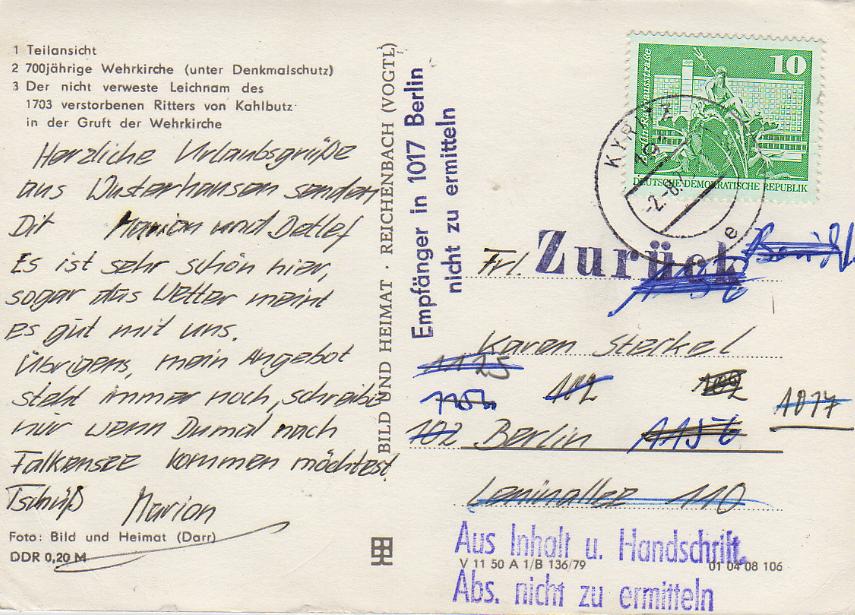 1 Teilansicht
2 700jährige Wehrkirche (unter Denkmalschutz)
3 Der nicht verweste Leichnam des
1703 verstorbenen Ritters von Kahlbutz
in der Gruft der Wehrkirche
Herzliche Urlaubsgrüße
aus Wusterhausen senden
Dir Marion und Detlef
Es ist sehr schön hier,
sogar das Wetter meint
es gut mit uns.
Übrigens, mein Angebot
steht immer noch, schreibe
nur wenn Du mal nach
Falkensee kommen möchtest.
Tschüß Marion
Foto: Bild und Heimat (Darr)
DDR 0,20 M
BILD UND HEIMAT · REICHENBACH (VOGTL)
Empfänger in 1017 Berlin
nicht zu ermitteln
10
DEUTSCHE DEMOKRATISCHE REPUBLIK
KYRITZ
e
Zurück
Frl.
Karen Steckel
1125
102
1017
102 Berlin 1156
Leninallee 110
Aus Inhalt u. Handschrift
V 11 50 A 1/B 136/79 01 04 08 106
Abs. nicht zu ermitteln